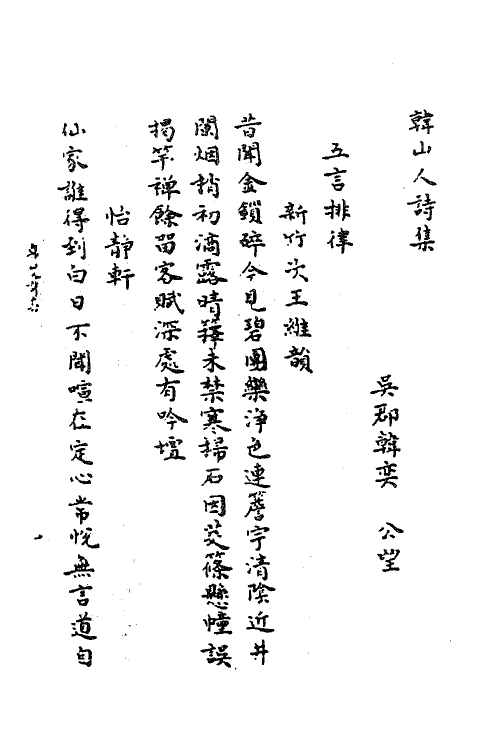 韓山人詩集
吳郡韓奕　公望
五言排律
新竹次王維韻
昔聞金鎖碎今見碧團欒淨色連簷宇清陰近井
闌烟梢初滴露晴籜未禁寒掃石因芟篠懸幢誤
揭竿禅餘留客賦深處有吟壇
怡靜軒
仙家誰得到白日不聞喧在定心常悅無言道自